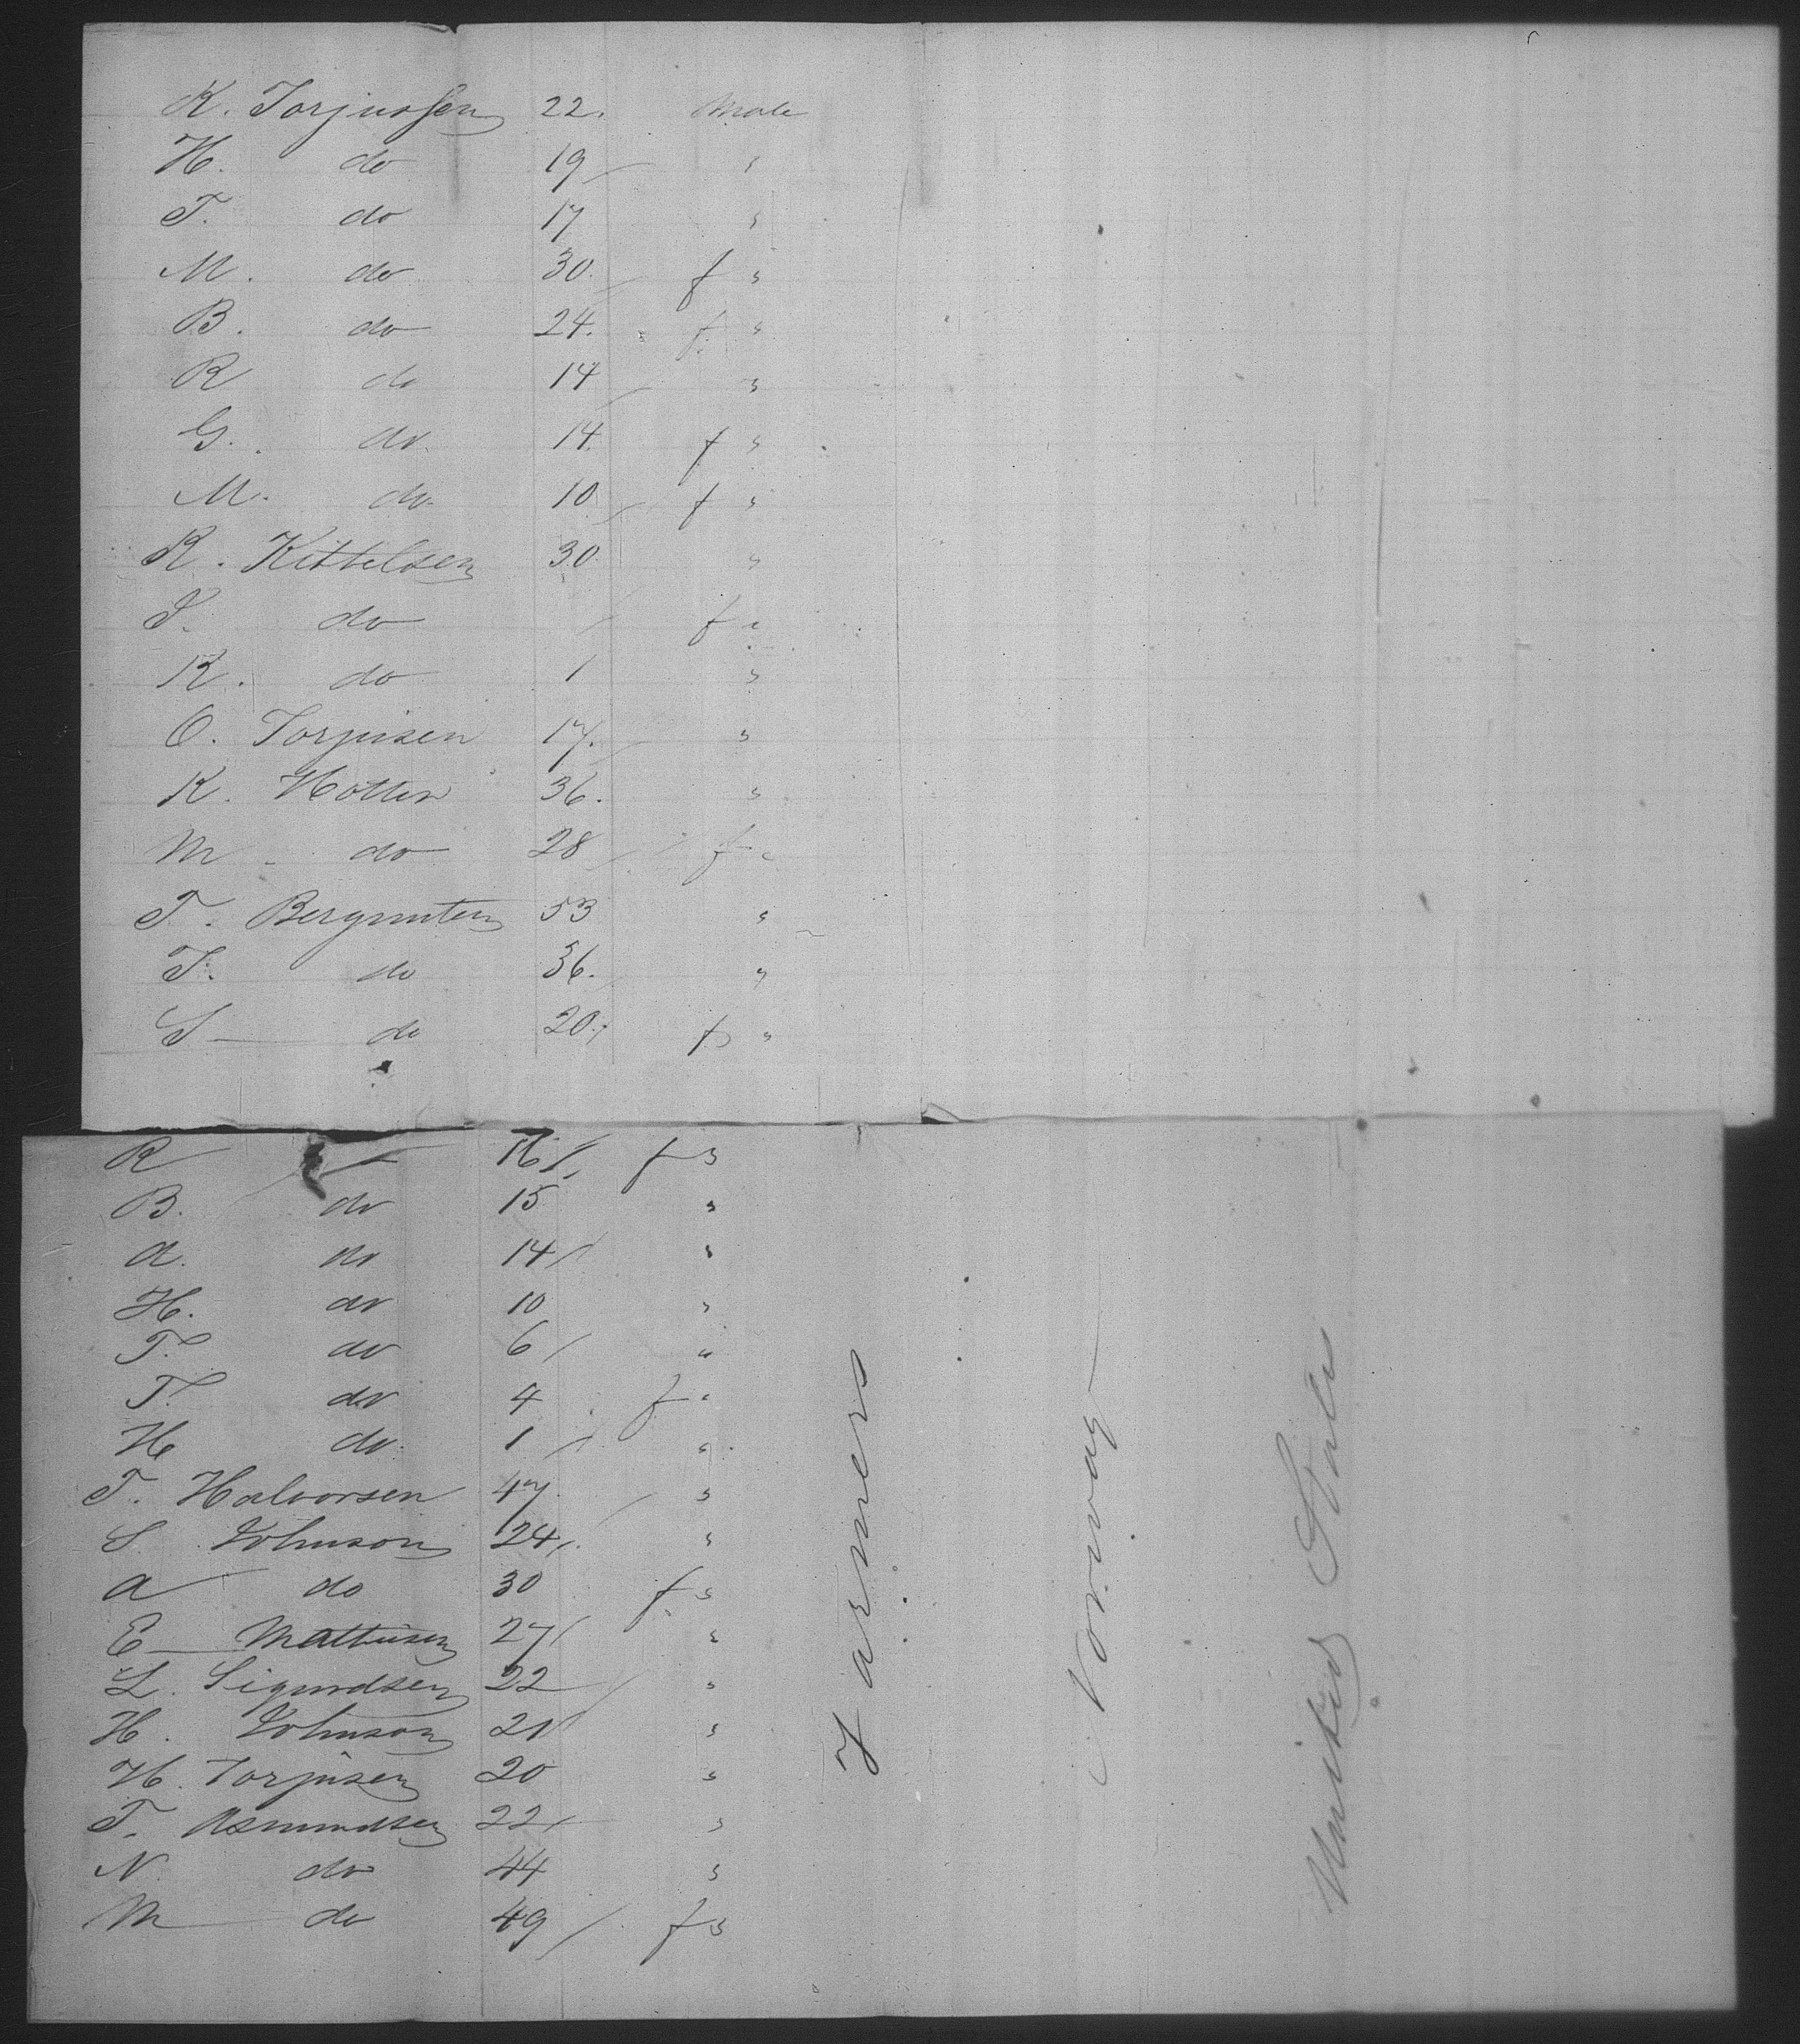 K. Torjussen 22. Male
H. do 19 "
T. do 17 "
M. do 30. f "
B. do 24. f "
R do 14 "
G. do 14. f "
M. do 10 f "
K. Kittelsen 30 "
T. do f "
K. do 1 "
O. Torjusen 17. "
K. Hotten 36. "
M do 28 f "
T. Bergunten 53 "
T. do 36. "
S — do 20. f "
R 16 f "
B. do 15 "
A. do 14 "
H. do 10 "
T. do 6 "
T. do 4 f "
H do 1 "
T. Halvorsen 47 "
S. Johnson 24 "
A do 30 f "
E — Mathisen 27 "
L. Sigurdsen 22 "
H. Johnson 21 "
H. Torjusen 20 "
T. Asmundsen 22 "
N. do 44 "
M do 49 f "
Farmers
Norway
United States